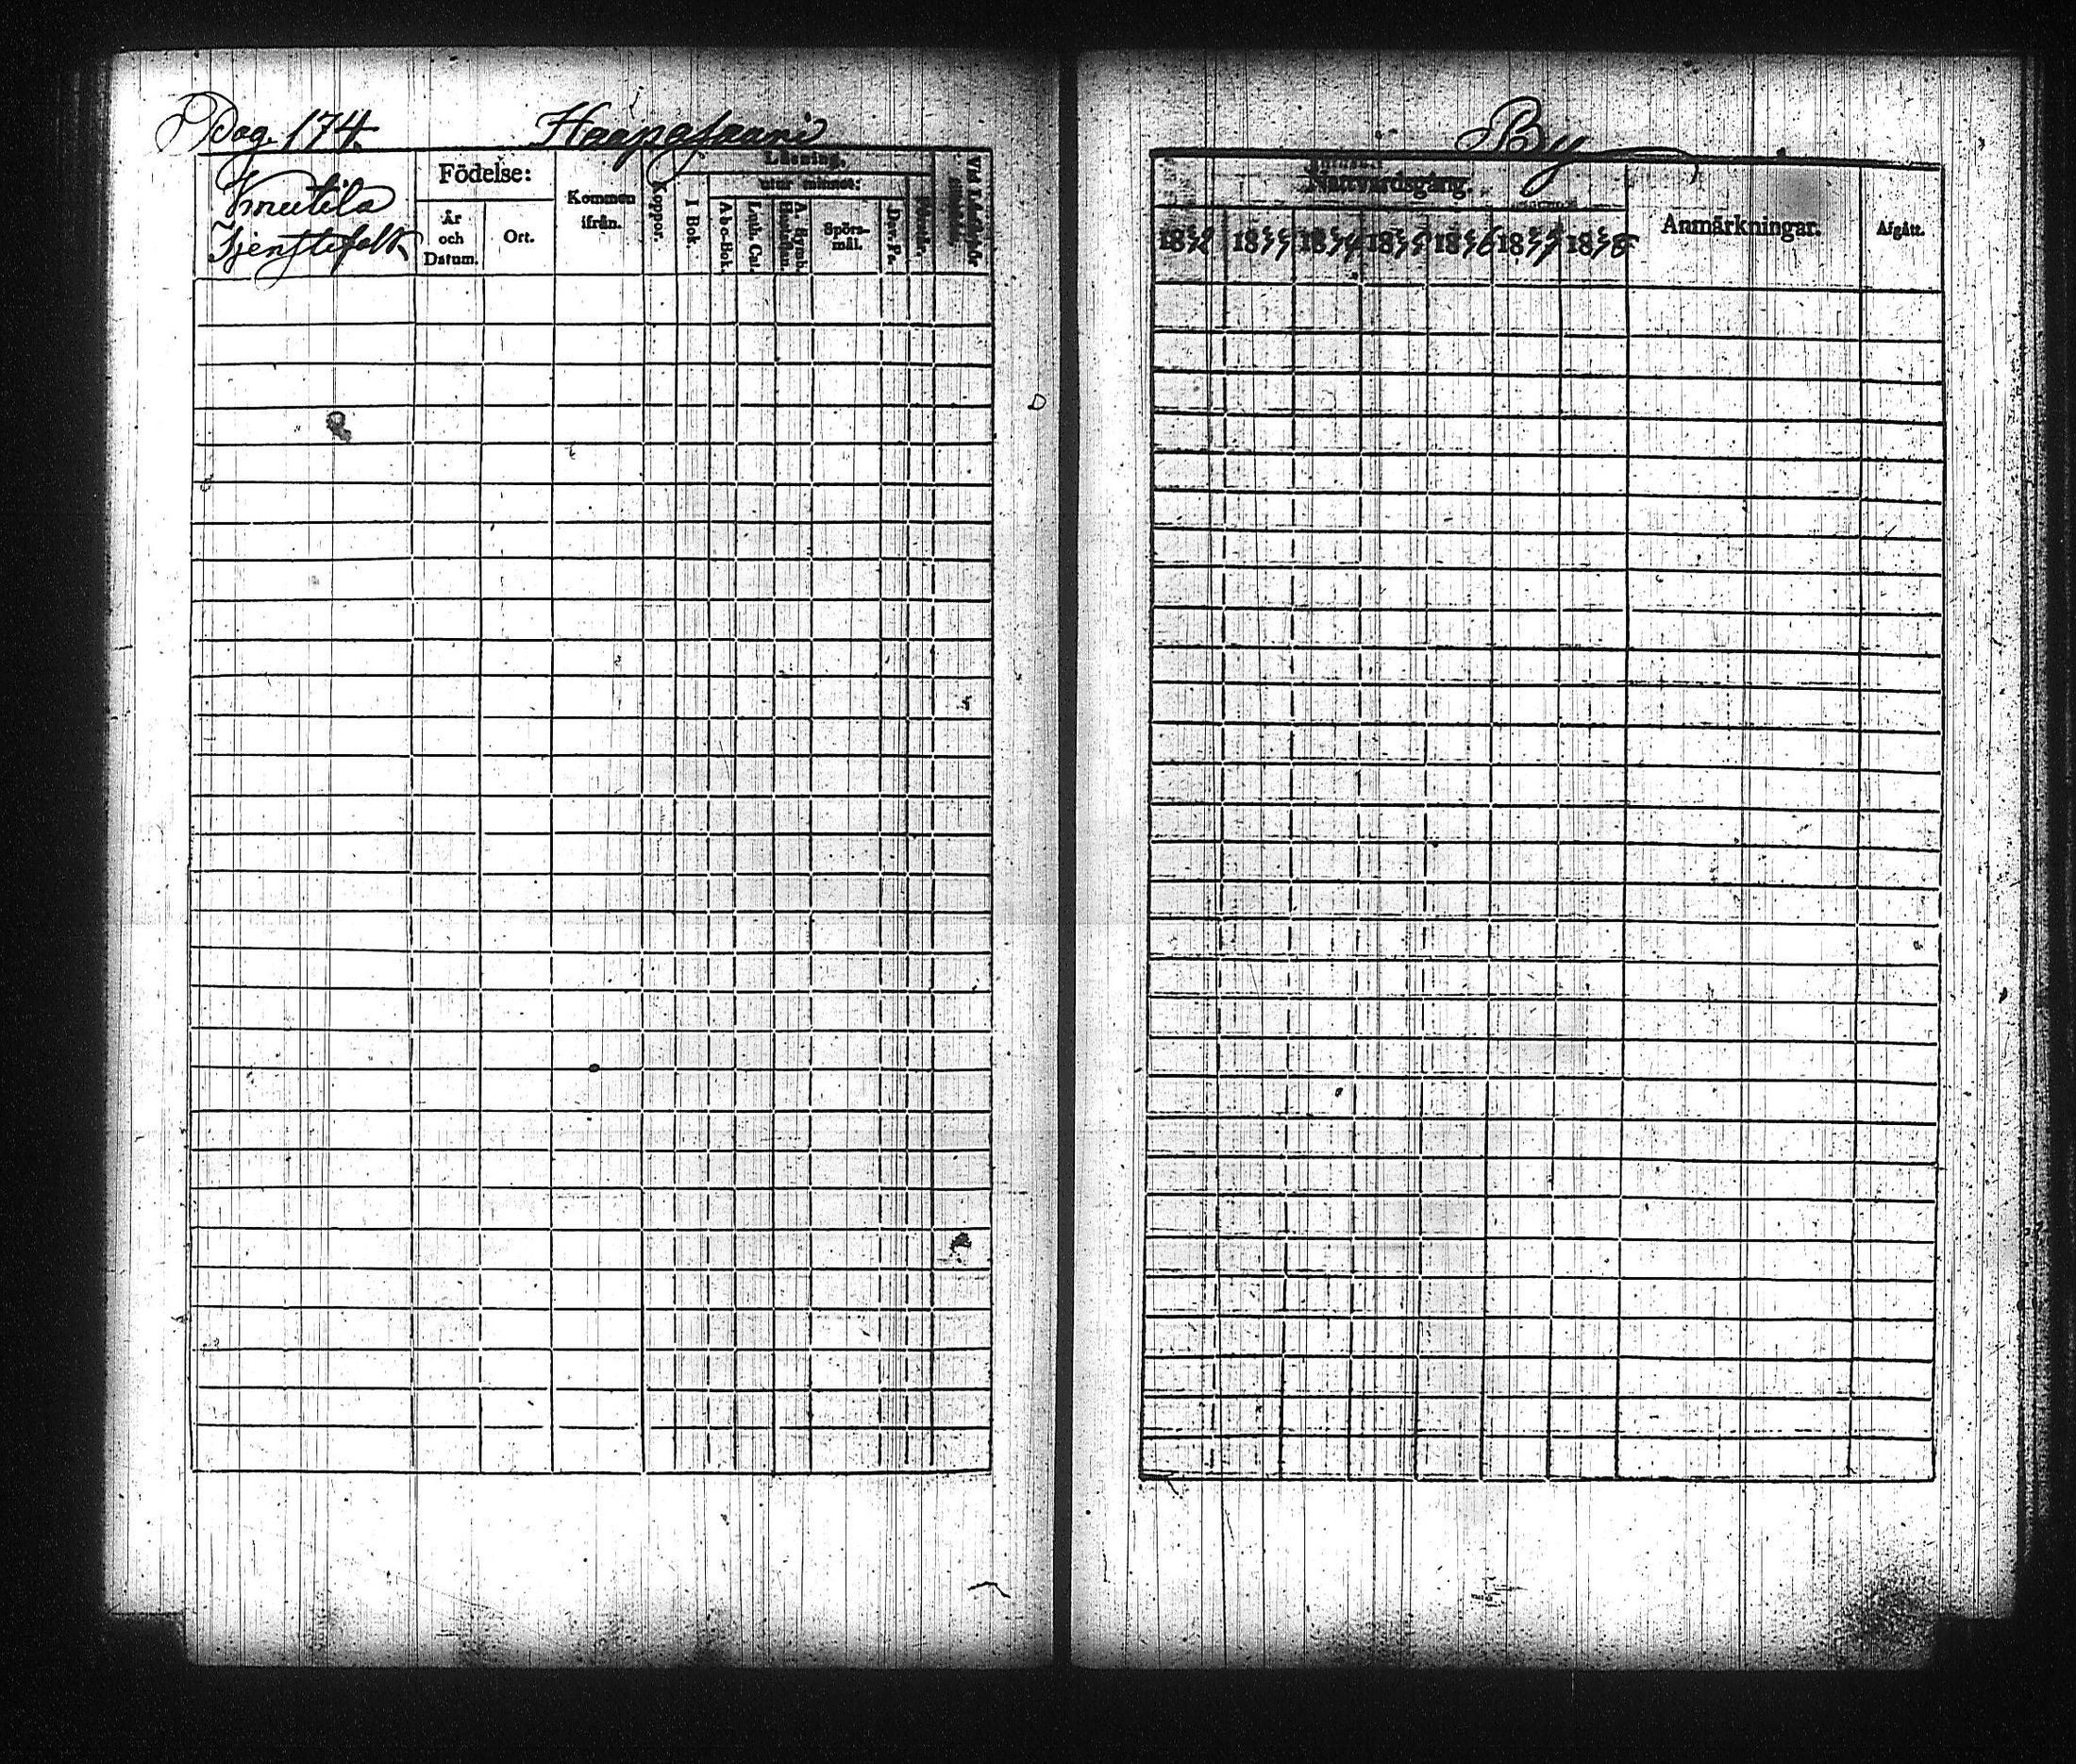 Pag. 174.
Haapasaari
By
Knutila
Tjenstefolk
Födelse:
År
och
Datum.
Ort.
Kommen
ifrån.
Koppor.
Läsning,
utur minnet:
I Bok.
A-b-c-Bok.
Luth. Cat.
A. Symb.
Spörs-
mål.
Dav. Ps.
Nattvardsgång.
1852 1853 1854 1855 1856 1857 1858
Anmärkningar.
Afgått.